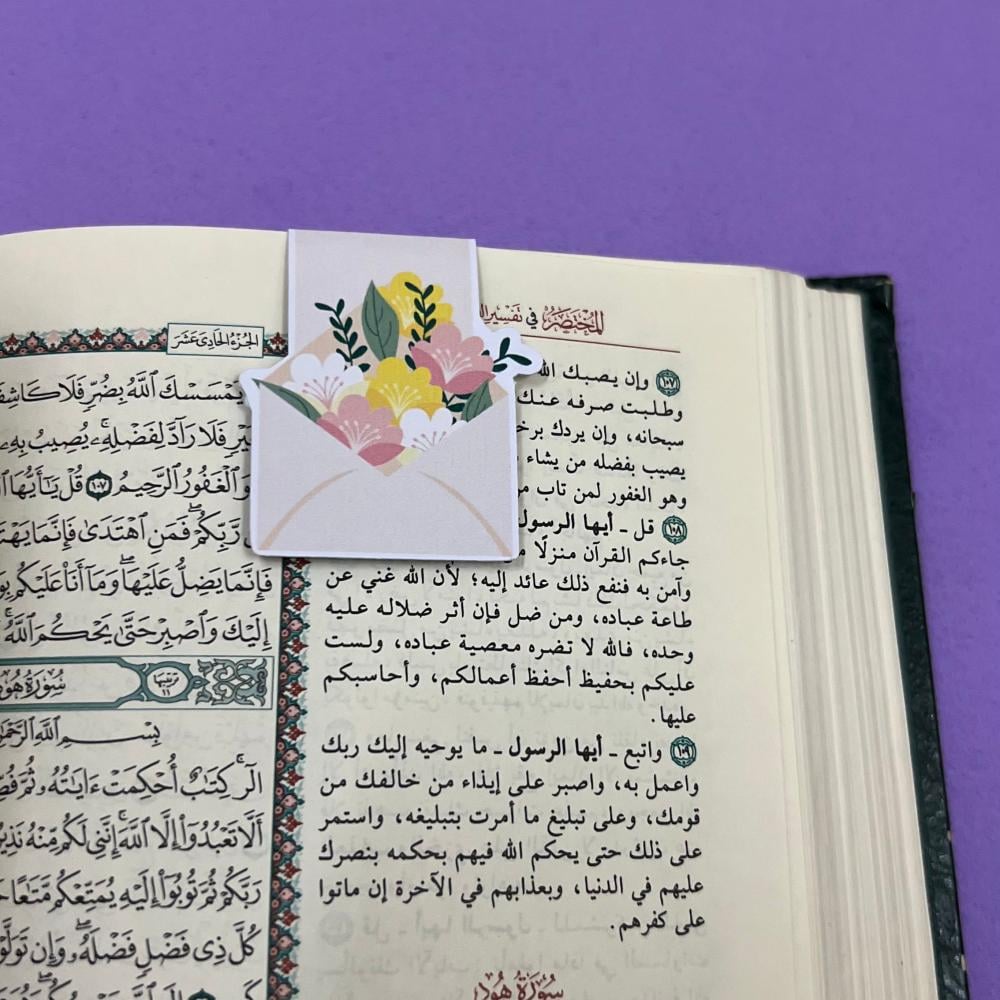 المختصر في تفسير
الجزء الحادي عشر
١٠٧ وإن يصبك الله
وطلبت صرفه عنك
سبحانه، وإن يردك
يصيب بفضله من يشاء
وهو الغفور لمن تاب
١٠٨ قل ـ أيها الرسول
جاءكم القرآن منزلًا
وآمن به فنفع ذلك عائد إليه؛ لأن الله غني عن
طاعة عباده، ومن ضل فإن أثر ضلاله عليه
وحده، فالله لا تضره معصية عباده، ولست
عليكم بحفيظ أحفظ أعمالكم، وأحاسبكم
عليها.
١٠٩ واتبع ـ أيها الرسول ـ ما يوحيه إليك ربك
واعمل به، واصبر على إيذاء من خالفك من
قومك، وعلى تبليغ ما أمرت بتبليغه، واستمر
على ذلك حتى يحكم الله فيهم بحكمه بنصرك
عليهم في الدنيا، وبعذابهم في الآخرة إن ماتوا
على كفرهم.
سُورَةُ هُودٍ
يَمْسَسْكَ ٱللَّهُ بِضُرٍّ فَلَا كَاشِفَ
فَلَا رَآدَّ لِفَضْلِهِۦۚ يُصِيبُ بِهِۦ
ٱلْغَفُورُ ٱلرَّحِيمُ ١٠٧ قُلْ يَٰٓأَيُّهَا
رَّبِّكُمْۖ فَمَنِ ٱهْتَدَىٰ فَإِنَّمَا
فَإِنَّمَا يَضِلُّ عَلَيْهَاۖ وَمَآ أَنَا۠ عَلَيْكُم
إِلَيْكَ وَٱصْبِرْ حَتَّىٰ يَحْكُمَ ٱللَّهُۚ
ترتيبها ١١ سُورَةُ هُود
بِسْمِ ٱللَّهِ
الٓرۚ كِتَٰبٌ أُحْكِمَتْ ءَايَٰتُهُۥ ثُمَّ
أَلَّا تَعْبُدُوٓا۟ إِلَّا ٱللَّهَۚ إِنَّنِى لَكُم مِّنْهُ نَذِيرٌ
رَبَّكُمْ ثُمَّ تُوبُوٓا۟ إِلَيْهِ يُمَتِّعْكُم مَّتَٰعًا
كُلَّ ذِى فَضْلٍ فَضْلَهُۥۖ وَإِن